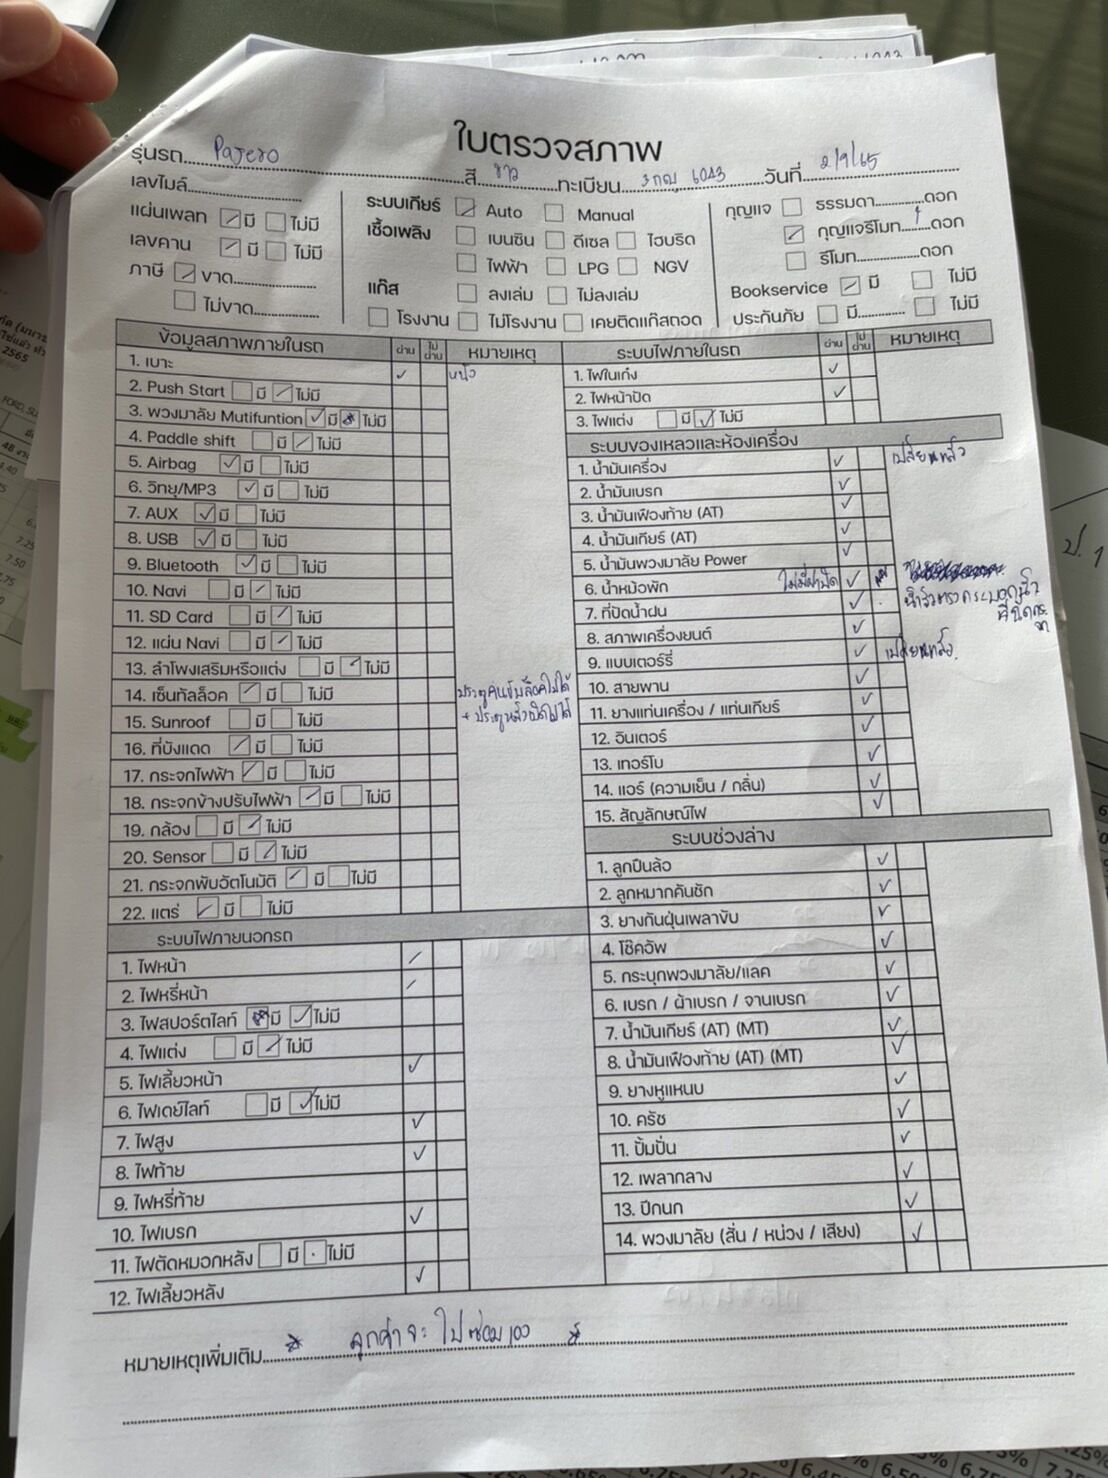 ใบตรวจสภาพ
รุ่นรถ Pajero สี ขาว ทะเบียน 3กญ 6043 วันที่ 2/9/65
เลขไมล์
แผ่นเพลท มี ไม่มี
เลขคาน มี ไม่มี
ภาษี ขาด
ไม่ขาด
ระบบเกียร์ Auto Manual
เชื้อเพลิง เบนซิน ดีเซล ไฮบริด
ไฟฟ้า LPG NGV
แก๊ส ลงเล่ม ไม่ลงเล่ม
โรงงาน ไม่โรงงาน เคยติดแก๊สถอด
กุญแจ ธรรมดา ดอก
กุญแจรีโมท 1 ดอก
รีโมท ดอก
Bookservice มี ไม่มี
ประกันภัย มี ไม่มี
ข้อมูลสภาพภายในรถ ผ่าน ไม่ผ่าน หมายเหตุ
1. เบาะ ✓ หนัง
2. Push Start มี ไม่มี
3. พวงมาลัย Mutifuntion มี ไม่มี
4. Paddle shift มี ไม่มี
5. Airbag มี ไม่มี
6. วิทยุ/MP3 มี ไม่มี
7. AUX มี ไม่มี
8. USB มี ไม่มี
9. Bluetooth มี ไม่มี
10. Navi มี ไม่มี
11. SD Card มี ไม่มี
12. แผ่น Navi มี ไม่มี
13. ลำโพงเสริมหรือแต่ง มี ไม่มี
14. เซ็นทัลล็อค มี ไม่มี ประตูคนขับล็อคไม่ได้
15. Sunroof มี ไม่มี + ประตูหลังเปิดไม่ได้
16. ที่บังแดด มี ไม่มี
17. กระจกไฟฟ้า มี ไม่มี
18. กระจกข้างปรับไฟฟ้า มี ไม่มี
19. กล้อง มี ไม่มี
20. Sensor มี ไม่มี
21. กระจกพับอัตโนมัติ มี ไม่มี
22. แตร่ มี ไม่มี
ระบบไฟภายนอกรถ
1. ไฟหน้า
2. ไฟหรี่หน้า
3. ไฟสปอร์ตไลท์ มี ไม่มี
4. ไฟแต่ง มี ไม่มี
5. ไฟเลี้ยวหน้า
6. ไฟเดย์ไลท์ มี ไม่มี
7. ไฟสูง
8. ไฟท้าย
9. ไฟหรี่ท้าย
10. ไฟเบรก
11. ไฟตัดหมอกหลัง มี ไม่มี
12. ไฟเลี้ยวหลัง
ระบบไฟภายในรถ ผ่าน ไม่ผ่าน หมายเหตุ
1. ไฟในเก๋ง
2. ไฟหน้าปัด
3. ไฟแต่ง มี ไม่มี
ระบบของเหลวและห้องเครื่อง
1. น้ำมันเครื่อง เปลี่ยนแล้ว
2. น้ำมันเบรก
3. น้ำมันเฟืองท้าย (AT)
4. น้ำมันเกียร์ (AT)
5. น้ำมันพวงมาลัย Power
6. น้ำหม้อพัก ไม่มีฝาปิด
7. ที่ปัดน้ำฝน น้ำรั่วตรงกระบอกน้ำ
8. สภาพเครื่องยนต์
9. แบบเตอร์รี่ เปลี่ยนแล้ว
10. สายพาน
11. ยางแท่นเครื่อง / แท่นเกียร์
12. อินเตอร์
13. เทอร์โบ
14. แอร์ (ความเย็น / กลิ่น)
15. สัญลักษณ์ไฟ
ระบบช่วงล่าง
1. ลูกปืนล้อ
2. ลูกหมากคันชัก
3. ยางกันฝุ่นเพลาขับ
4. โช๊คอัพ
5. กระบุกพวงมาลัย/แลค
6. เบรก / ผ้าเบรก / จานเบรก
7. น้ำมันเกียร์ (AT) (MT)
8. น้ำมันเฟืองท้าย (AT) (MT)
9. ยางหูแหนบ
10. ครัช
11. ปั้มปั่น
12. เพลากลาง
13. ปีกนก
14. พวงมาลัย (สั่น / หน่วง / เสียง)
หมายเหตุเพิ่มเติม ลูกค้าจะไปซ่อมเอง